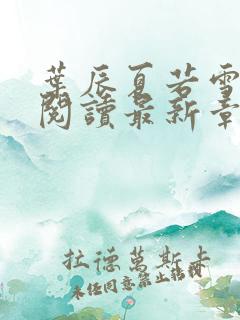 葉辰夏若雪
閱讀最新章
拉德萬斯卡
未經同意禁止轉載